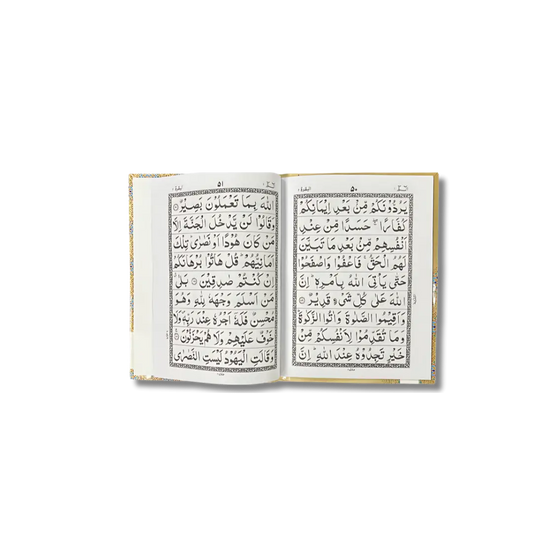 ٥٠
يَرُدُّوْنَكُمْ مِّنْۢ بَعْدِ اِيْمَانِكُمْ
كُفَّارًا ۚۖ حَسَدًا مِّنْ عِنْدِ
اَنْفُسِهِمْ مِّنْۢ بَعْدِ مَا تَبَيَّنَ
لَهُمُ الْحَقُّ ۚ فَاعْفُوْا وَاصْفَحُوْا
حَتّٰى يَاْتِىَ اللّٰهُ بِاَمْرِهٖ ؕ اِنَّ
اللّٰهَ عَلٰى كُلِّ شَىْءٍ قَدِيْرٌ
وَاَقِيْمُوا الصَّلٰوةَ وَاٰتُوا الزَّكٰوةَ ؕ
وَمَا تُقَدِّمُوْا لِاَنْفُسِكُمْ مِّنْ
خَيْرٍ تَجِدُوْهُ عِنْدَ اللّٰهِ ؕ اِنَّ
٥١
اللّٰهَ بِمَا تَعْمَلُوْنَ بَصِيْرٌ
وَقَالُوْا لَنْ يَّدْخُلَ الْجَنَّةَ اِلَّا
مَنْ كَانَ هُوْدًا اَوْ نَصٰرٰى ؕ تِلْكَ
اَمَانِيُّهُمْ ؕ قُلْ هَاتُوْا بُرْهَانَكُمْ
اِنْ كُنْتُمْ صٰدِقِيْنَ بَلٰى ۗ
مَنْ اَسْلَمَ وَجْهَهٗ لِلّٰهِ وَهُوَ
مُحْسِنٌ فَلَهٗۤ اَجْرُهٗ عِنْدَ رَبِّهٖ ۪ وَلَا
خَوْفٌ عَلَيْهِمْ وَلَا هُمْ يَحْزَنُوْنَ
وَقَالَتِ الْيَهُوْدُ لَيْسَتِ النَّصٰرٰى